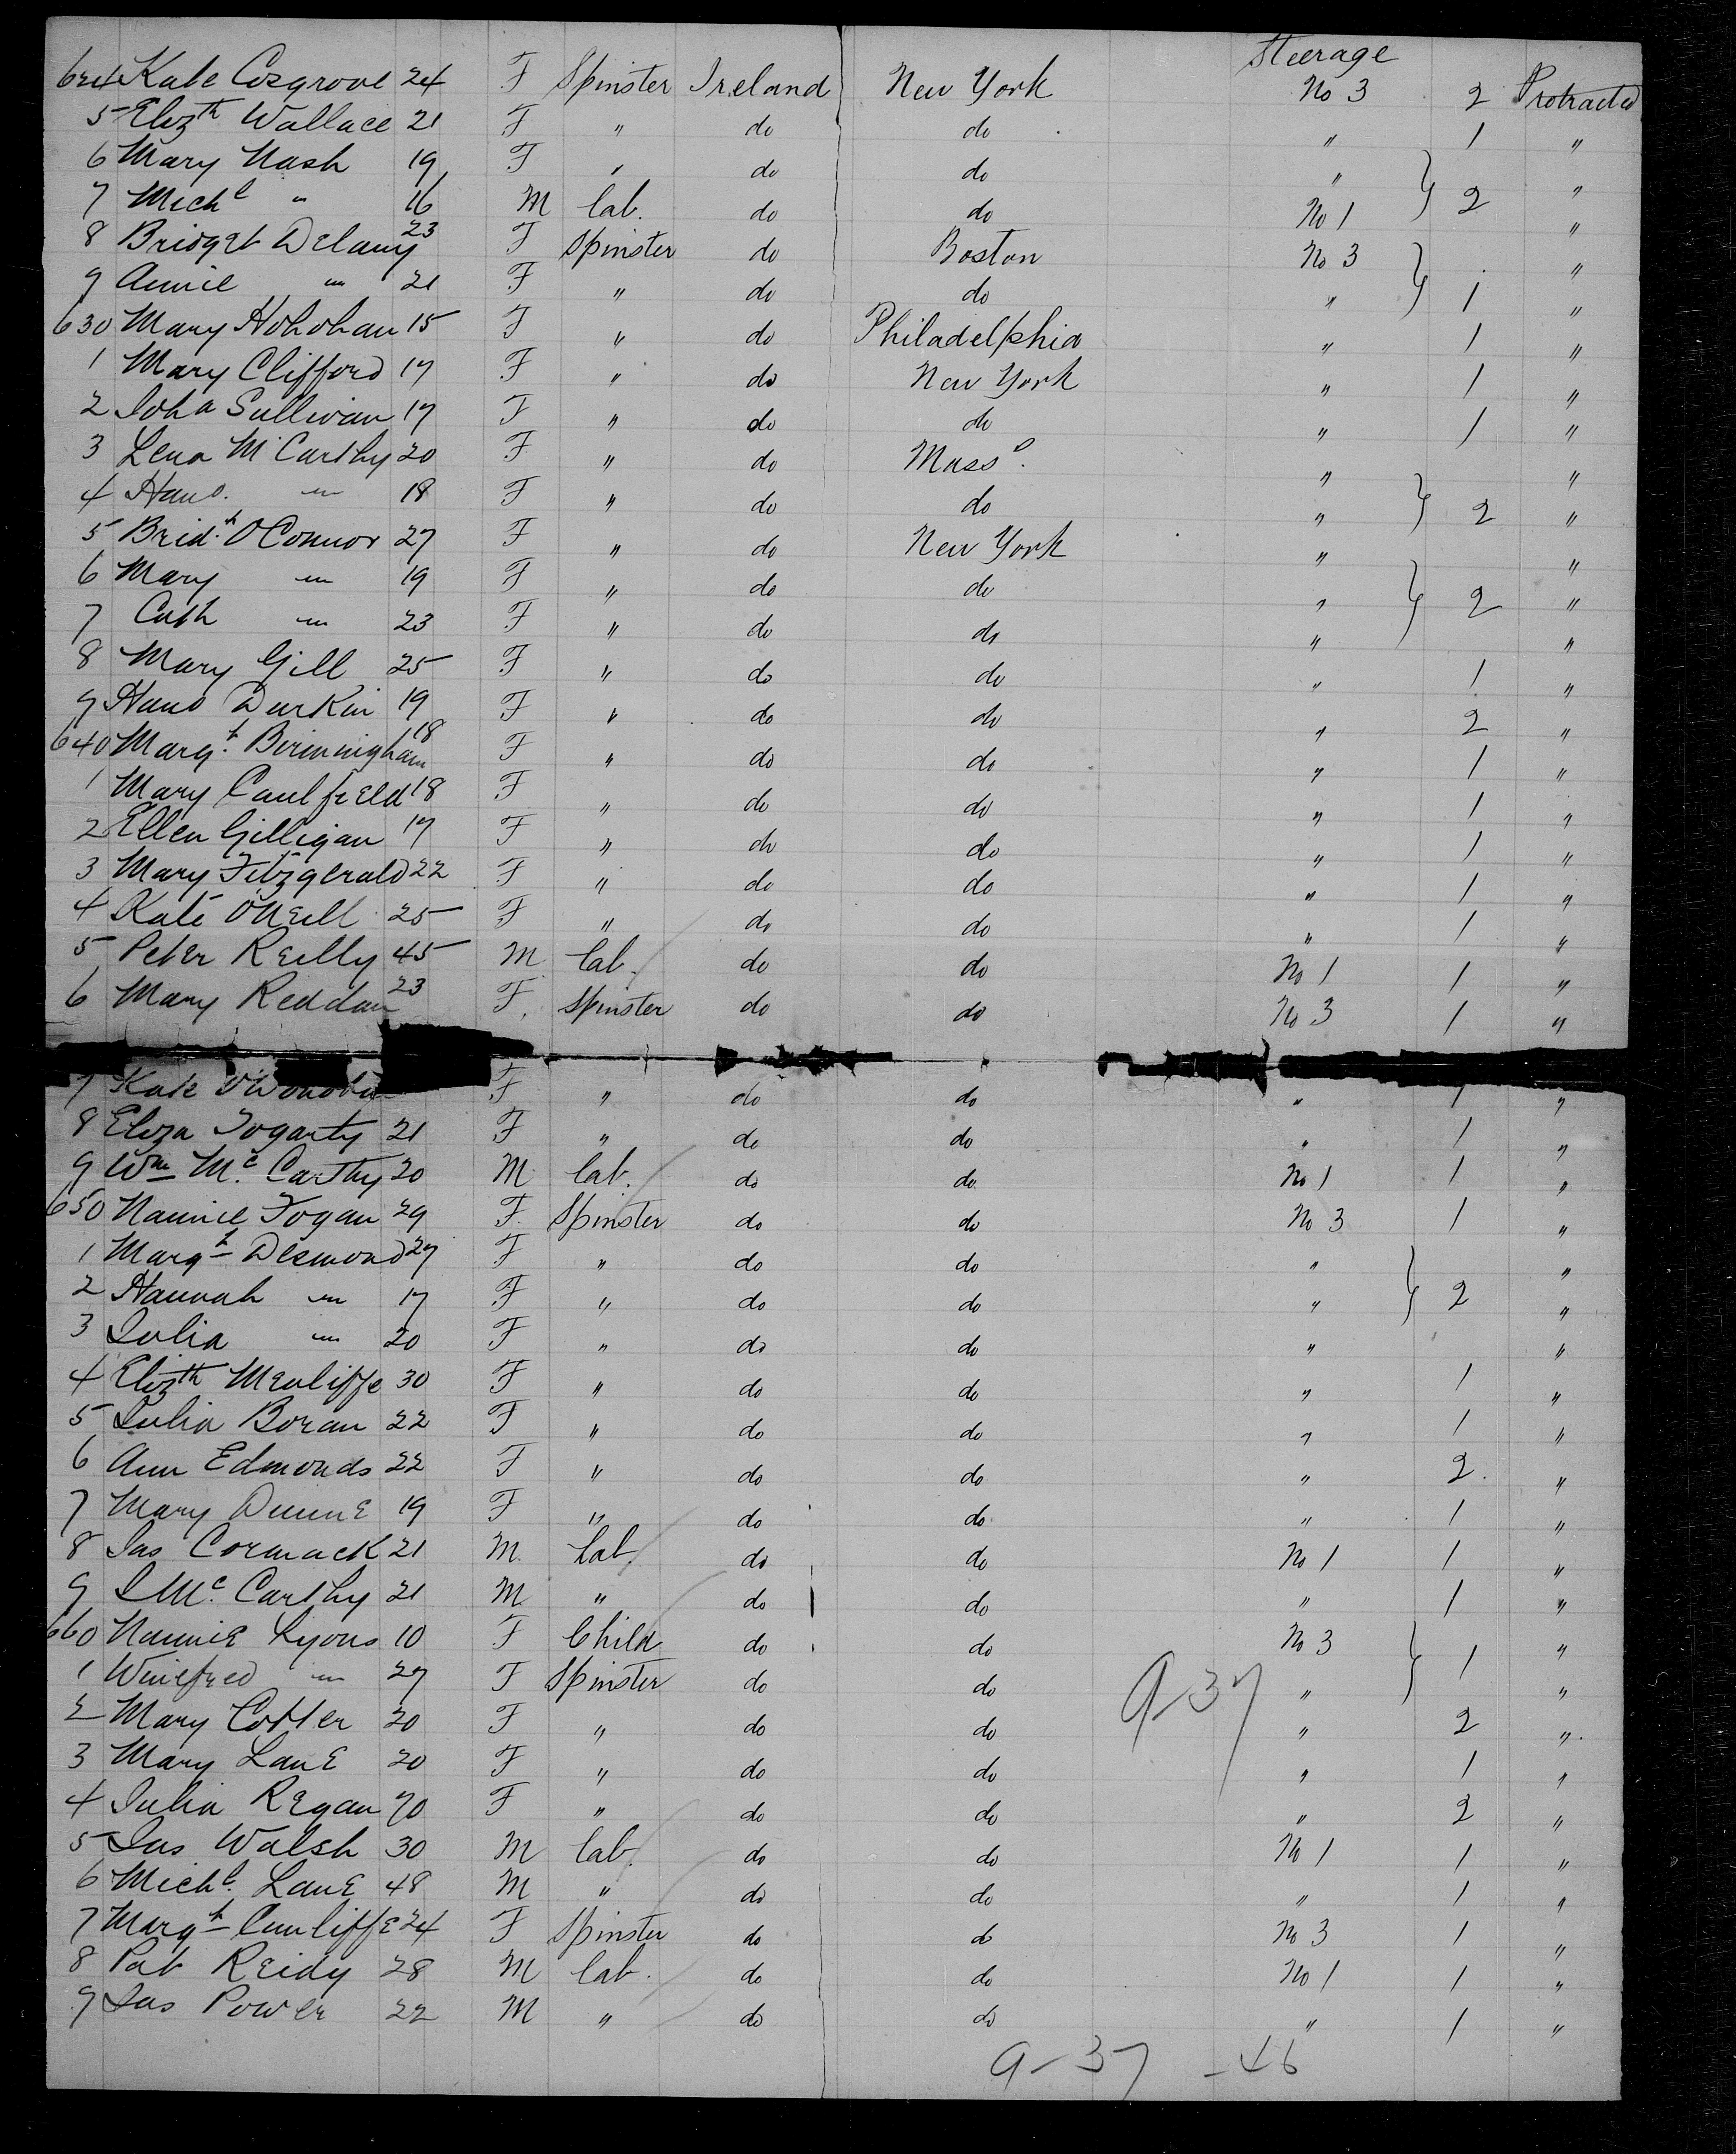 Steerage
624 Kate Cosgrove 24 F Spinster Ireland New York No 3 2 Protracted
5 Elizth Wallace 21 F " do do " 1 "
6 Mary Nash 19 F " do do " "
7 Michl " 16 M lab. do do No 1 2 "
8 Bridget Delany 23 F Spinster do Boston No 3 "
9 Annie " 21 F " do do " 1 "
630 Mary Hohohan 15 F " do Philadelphia " 1 "
1 Mary Clifford 17 F " do New York " 1 "
2 Joha Sullivan 17 F " do do " 1 "
3 Lena McCarthy 20 F " do Mass. " "
4 Hano. " 18 F " do do " 2 "
5 Bridt O'Connor 27 F " do New York " "
6 Mary " 19 F " do do " 2 "
7 Cath " 23 F " do do " "
8 Mary Gill 25 F " do do " 1 "
9 Hano Durkin 19 F " do do " 2 "
640 Margt Birmingham 18 F " do do " 1 "
1 Mary Caulfield 18 F " do do " 1 "
2 Ellen Gilligan 17 F " do do " 1 "
3 Mary Fitzgerald 22 F " do do " 1 "
4 Kate O'Neill 25 F " do do " 1 "
5 Peter Reilly 45 M lab. do do No 1 1 "
6 Mary Reddan 23 F. Spinster do do No 3 1 "
7 Kate F " do do " 1 "
8 Eliza Fogarty 21 F " do do " 1 "
9 Wm Mc. Carthy 20 M lab. do do No 1 1 "
650 Nannie Fogan 29 F. Spinster do do No 3 1 "
1 Margt Desmond 27 F " do do " "
2 Hannah " 17 F " do do " 2 "
3 Julia " 20 F " do do " "
4 Elizth 30 F " do do " 1 "
5 Julia Boran 22 F " do do " 1 "
6 Ann Edmonds 22 F " do do " 2 "
7 Mary Dunne 19 F " do do " 1 "
8 Jas Cormack 21 M. lab. do do No 1 1 "
9 J Mc. Carthy 21 M. " do do " 1 "
660 Nannie Lyons 10 F Child do do No 3 "
1 Winefred " 27 F Spinster do do 9-37 " 1 "
2 Mary Cotter 20 F " do do " 2 "
3 Mary Lane 20 F " do do " 1 "
4 Julia Regan 20 F " do do " 2 "
5 Jas Walsh 30 M lab. do do No 1 1 "
6 Michl. Lane 48 M " do do " 1 "
7 Margt Cunliffe 24 F Spinster do do No 3 1 "
8 Pat Reidy 28 M lab. do do No 1 1 "
9 Jas Power 22 M " do do " 1 "
9-37 -46